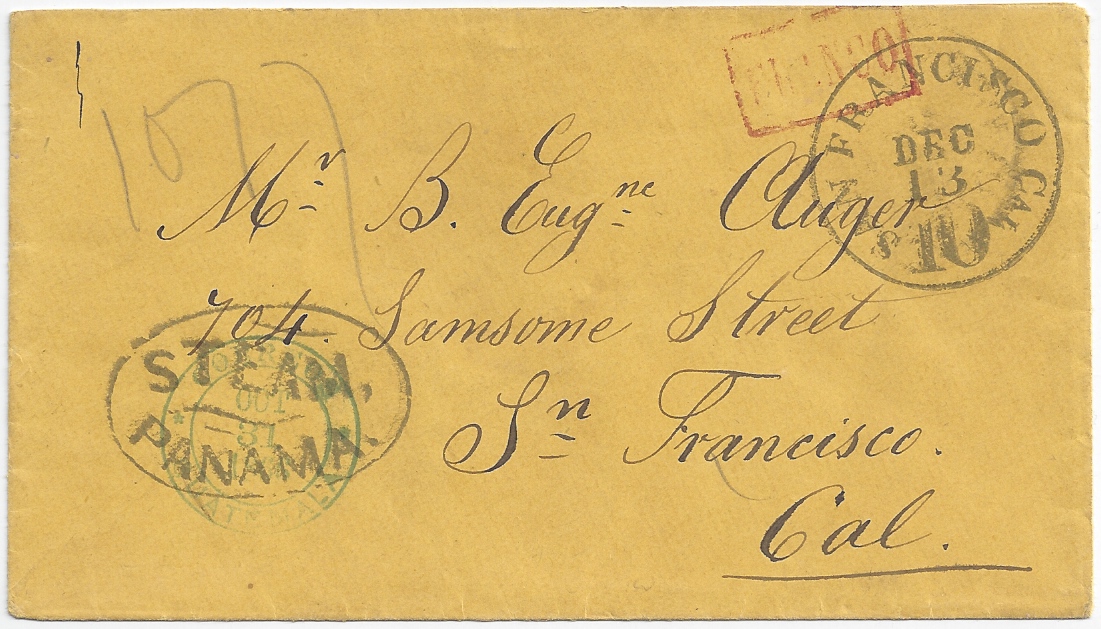 FRANCO
SAN FRANCISCO CAL
DEC
13
10
Mr. B. Eugne Auger
704. Samsome Street
Sn Francisco.
Cal.
STEAM,
PANAMA.
OCT
31
GUATEMALA